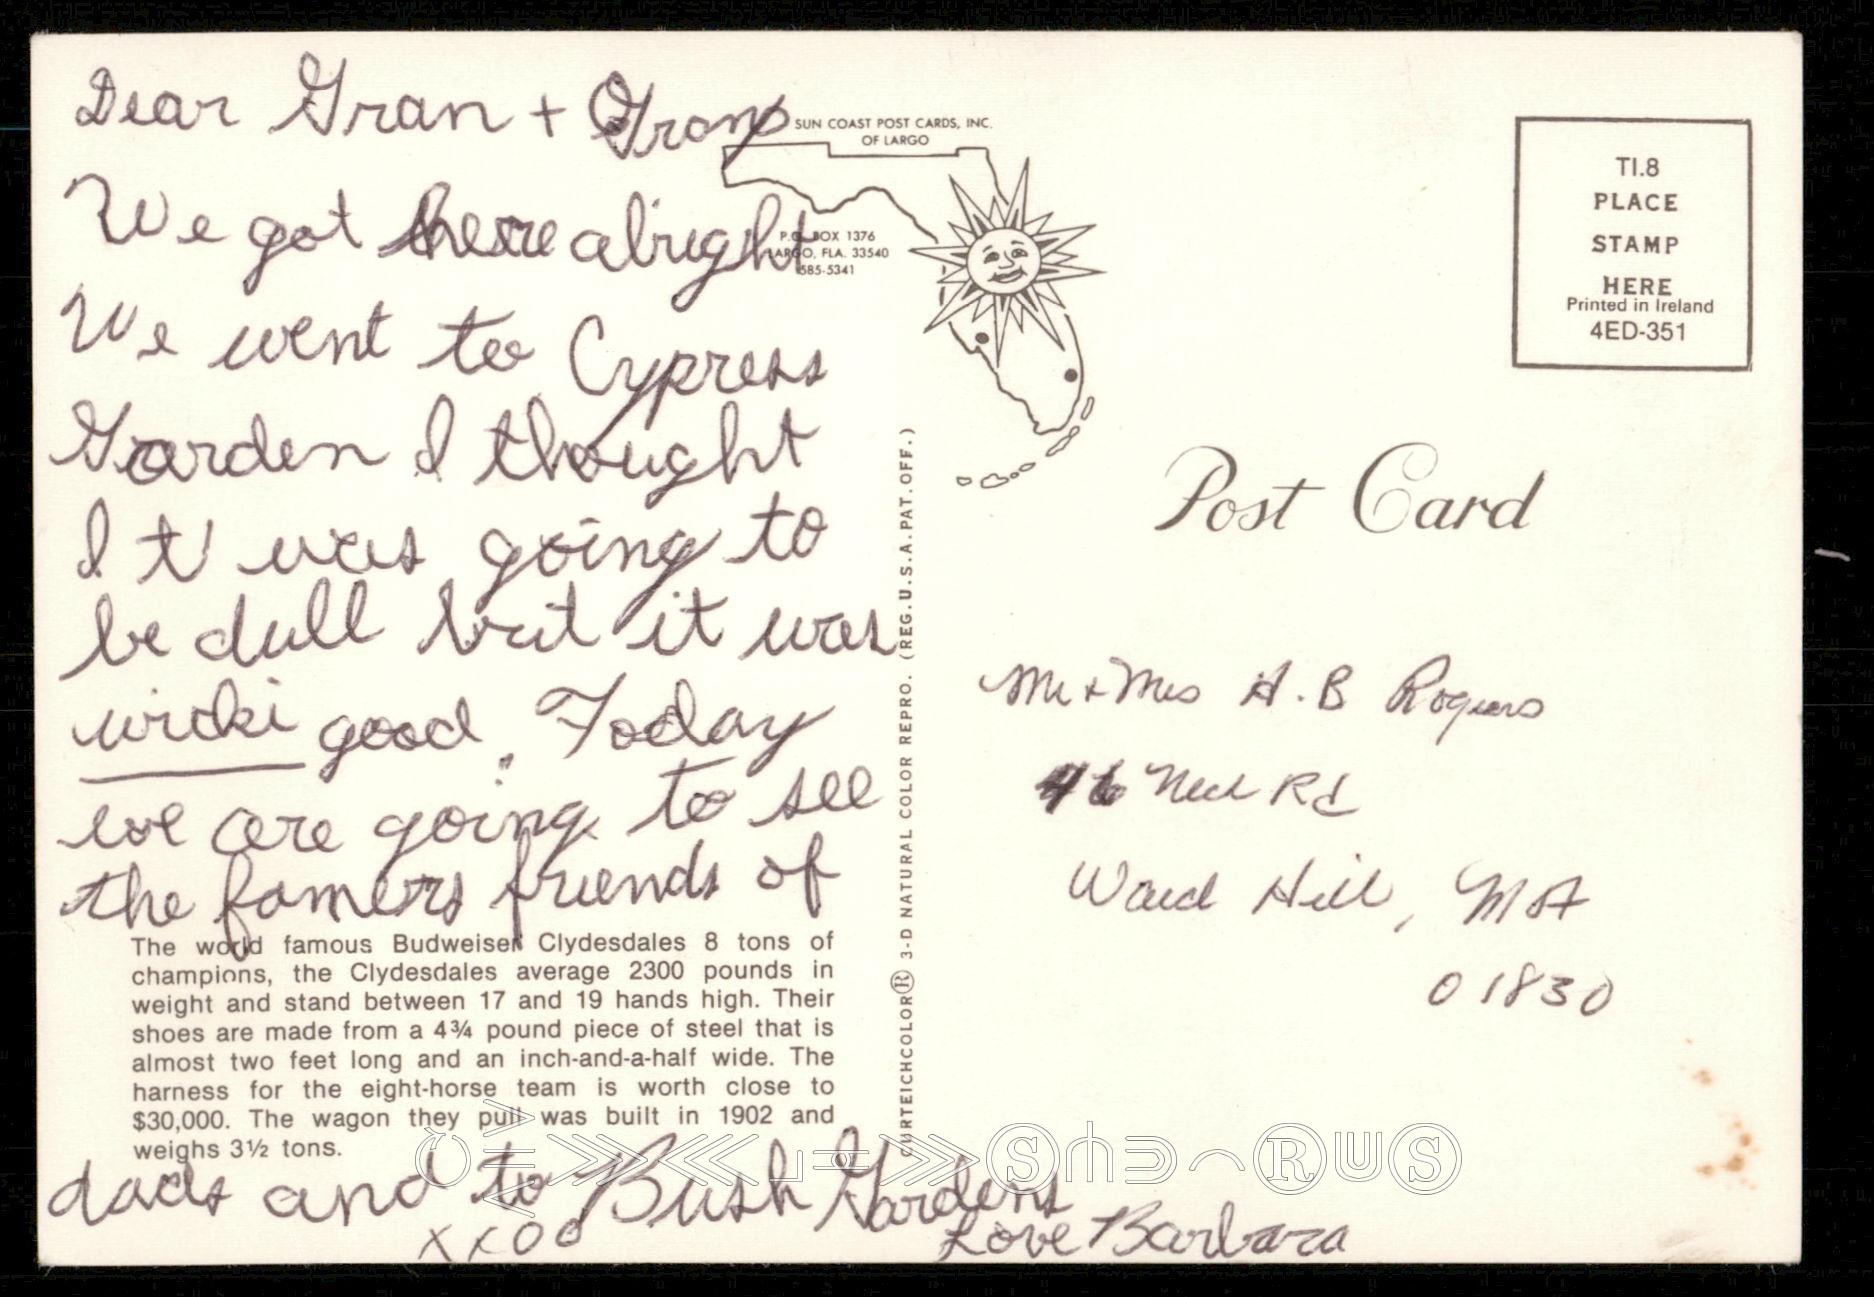 Dear Gran + Gramp
We got here alright
We went to Cypress
Garden I thought
It was going to
be dull but it was
wicki good. Today
we are going to see
the famers friends of
dads and to Bush Gardens
xxoo
Love Barbara
The world famous Budweiser Clydesdales 8 tons of
champions, the Clydesdales average 2300 pounds in
weight and stand between 17 and 19 hands high. Their
shoes are made from a 4¾ pound piece of steel that is
almost two feet long and an inch-and-a-half wide. The
harness for the eight-horse team is worth close to
$30,000. The wagon they pull was built in 1902 and
weighs 3½ tons.
SUN COAST POST CARDS, INC.
OF LARGO
P.O. BOX 1376
LARGO, FLA. 33540
585-5341
CURTEICHCOLOR® 3-D NATURAL COLOR REPRO. (REG.U.S.A.PAT.OFF.)
TI.8
PLACE
STAMP
HERE
Printed in Ireland
4ED-351
Post Card
Mr + Mrs H.B Rogers
46 Neck Rd
Ward Hill, MA
01830